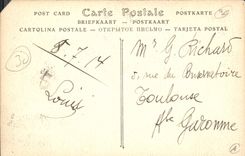 POST CARD Carte Postale POSTKARTE
BRIEFKAART — POSTKAART
CARTOLINA POSTALE — ОТКРЫТОЕ ПИСЬМО — TARJETA POSTAL
30
8/7/14
Louis
Mr G. Richard
8, rue du Conservatoire
Toulouse
Hte Garonne